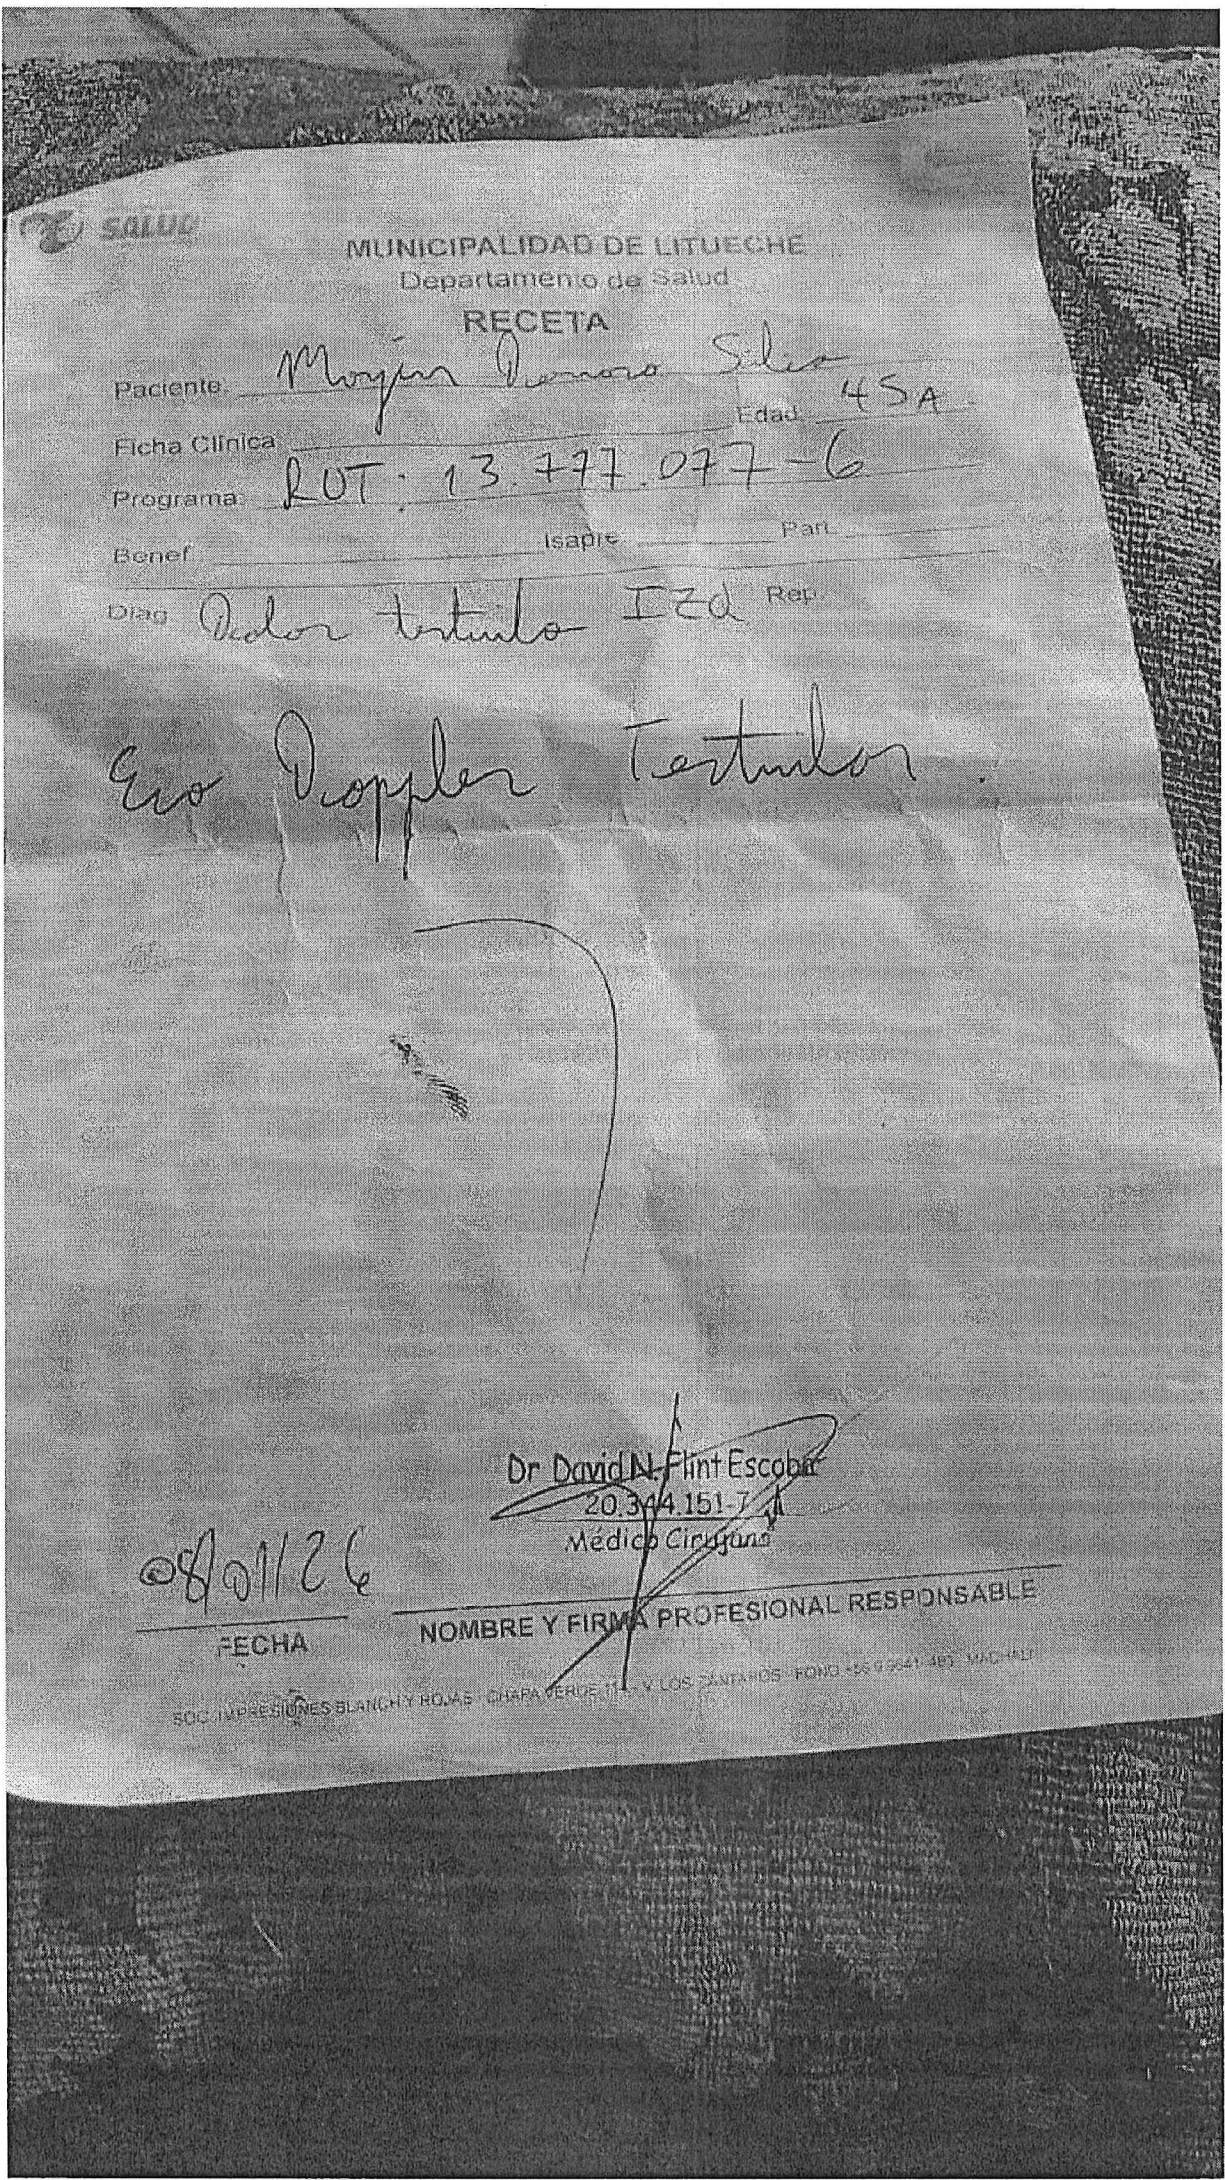 SALUD
MUNICIPALIDAD DE LITUECHE
Departamento de Salud
RECETA
Paciente: Silva
Edad: 45A
Ficha Clínica
Programa: RUT: 13.777.077-6
Benef. Isapre Part.
Diag Dolor testiculo Izq Rep.
Eco Doppler Testicular.
Dr David N. Flint Escobar
20.344.151-7
Médico Cirujano
08/01/26
FECHA
NOMBRE Y FIRMA PROFESIONAL RESPONSABLE
SOC. IMPRESIONES BLANCH Y ROJAS CHAPA VERDE LOS CANTAROS FONO MACHALI